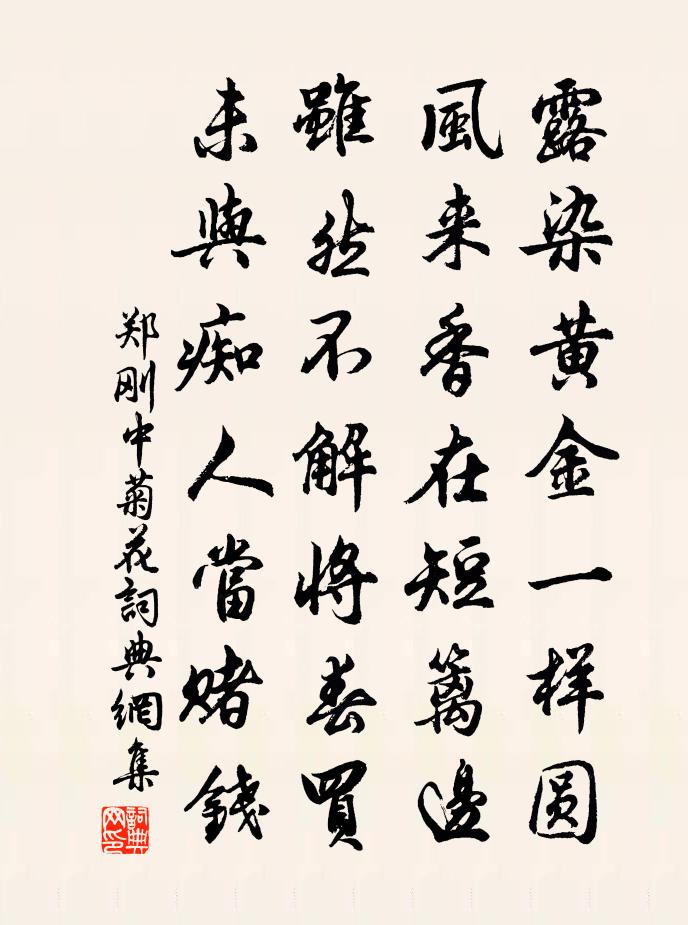 露染黄金一样圆
風来香在短籬邊
雖然不解將春買
未與痴人當賭錢
郑刚中菊花詞典網集
詞典网印